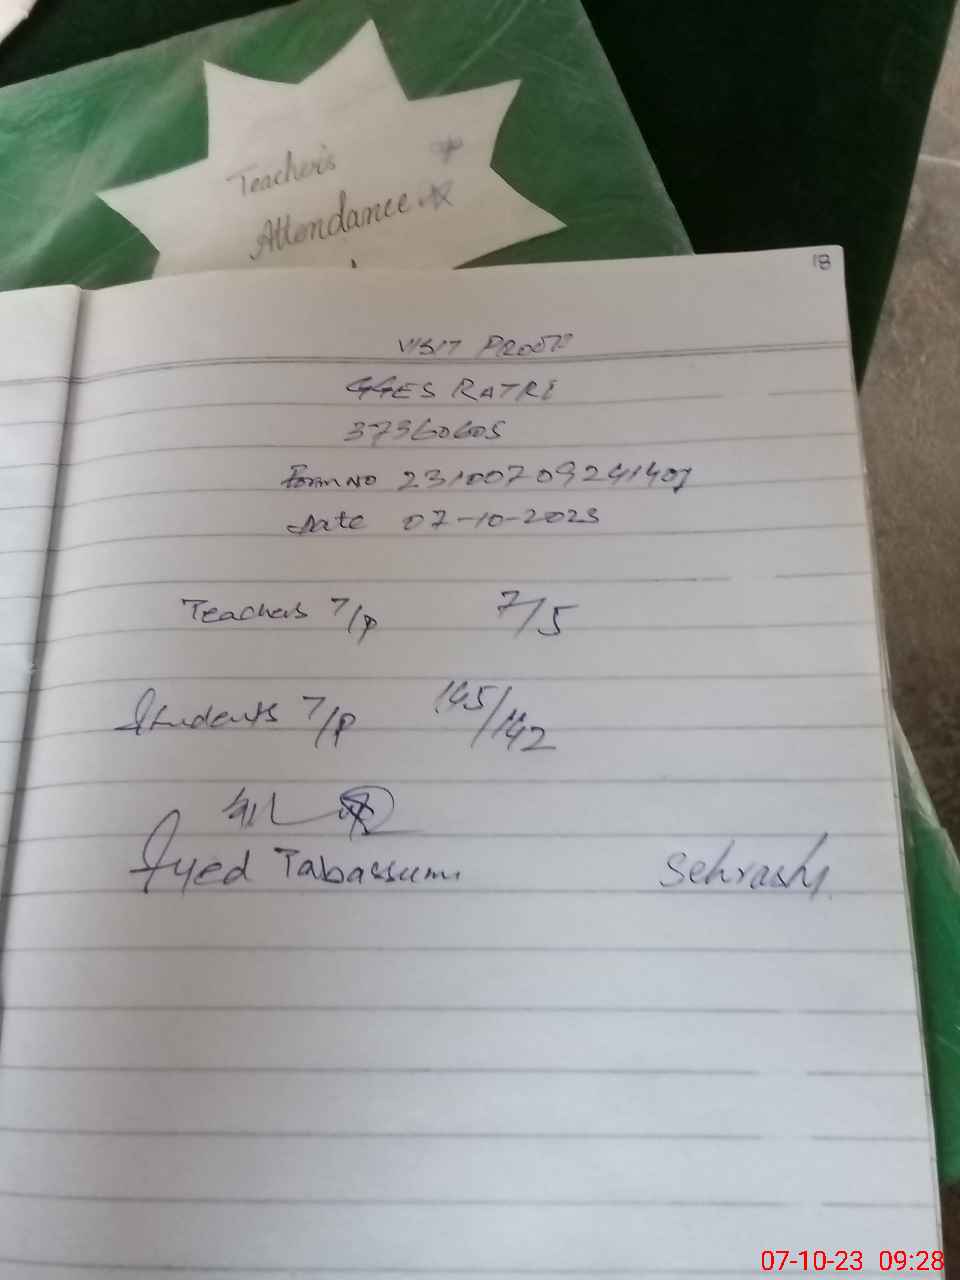 Teacher's
Attendance
18
VISIT PROOF
GGES RATRI
37360605
Form No 23100709241401
Date 07-10-2023
Teachers T/P 7/5
Students T/P 145/142
Syed Tabassum
Sehrash
07-10-23 09:28